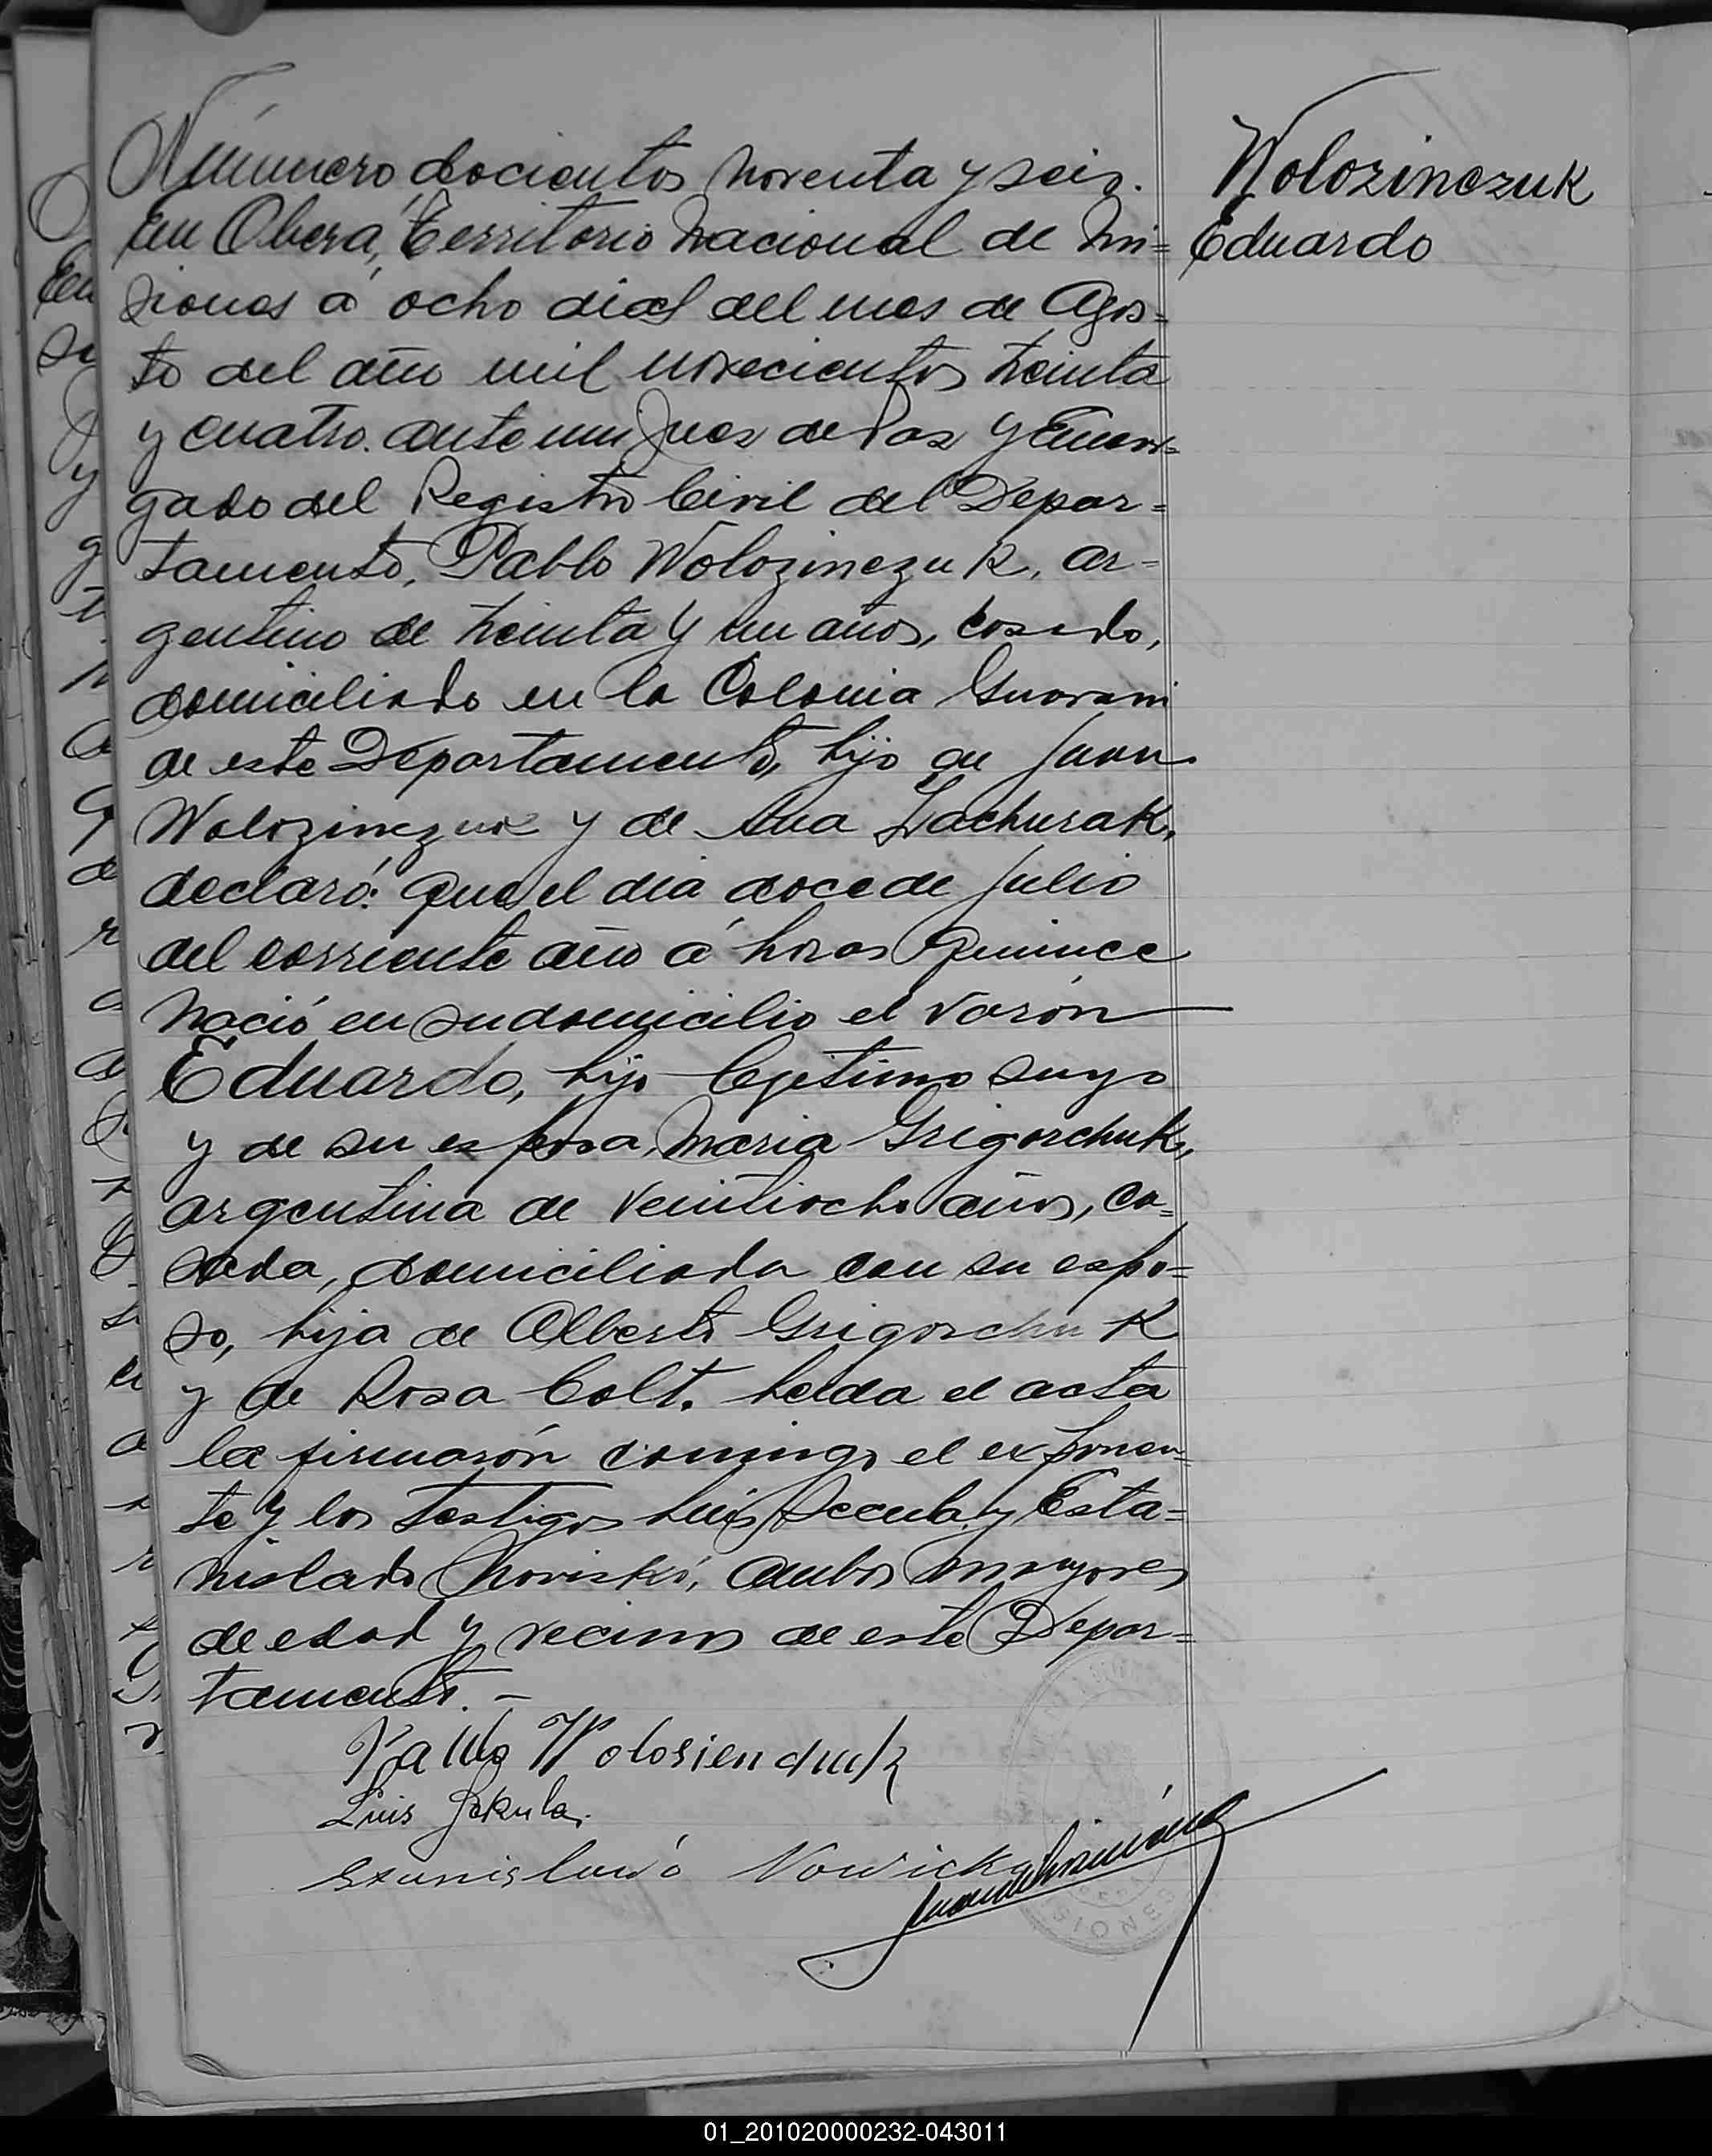 Número docientos noventa y seis.
Wolozinczuk
Eduardo
En Oberá, Territorio Nacional de Mi=
siones á ocho dias del mes de Agos=
to del año mil novecientos treinta
y cuatro. ante mi Juez de Paz y Encar=
gado del Registro Civil del Depar=
tamento, Pablo Wolozinczuk, ar=
gentino de treinta y un años, casado,
domiciliado en la Colonia Guarani
de este Departamento, hijo de Juan
Wolozinczuk y de Ana Lachurak,
declaró: Que el dia doce de Julio
del corriente año á horas quince
nació en su domicilio el varón
Eduardo, hijo legitimo suyo
y de su esposa, Maria Grigorchuk,
argentina de veintiocho años, ca=
sada, domiciliada con su espo=
so, hija de Alberto Grigorchuk
y de Rosa Colt. Leida el acta
la firmarón conmigo el exponen=
te y los testigos Luis Secula y Esta=
nislado Noviski, ambos mayores
de edad y vecinos de este Depar=
tamento. -
Pablo Wolosiendzuk
Luis Sekula.
Stanisluwó Nowicki
SIONES
01_201020000232-043011